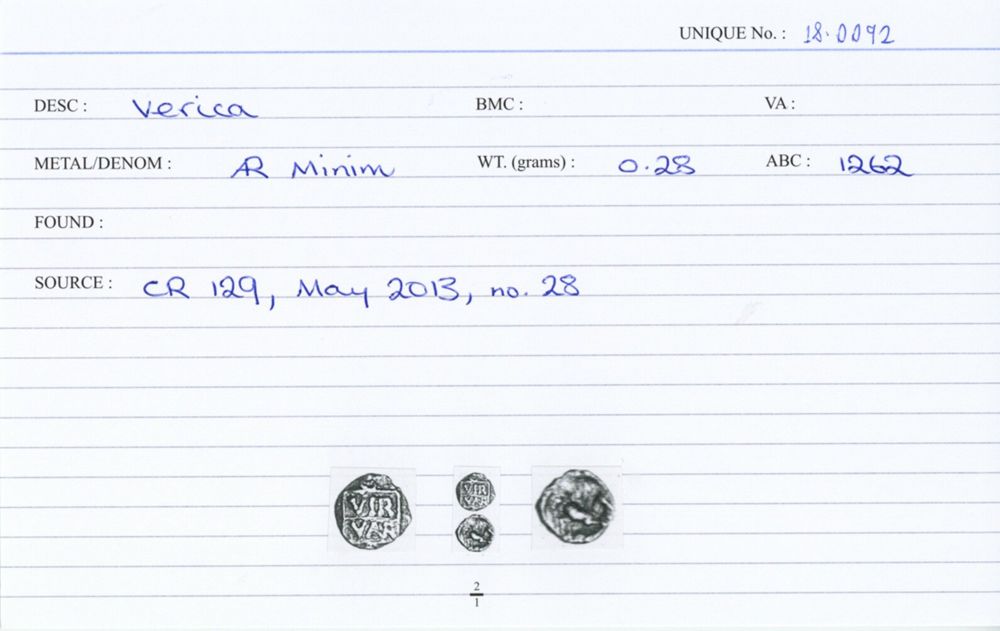 UNIQUE No. : 18.0092
DESC : Verica BMC : VA :
METAL/DENOM : AR Minim WT. (grams) : 0.28 ABC : 1262
FOUND :
SOURCE : CR 129, May 2013, no. 28
VIR
VIR
2
1